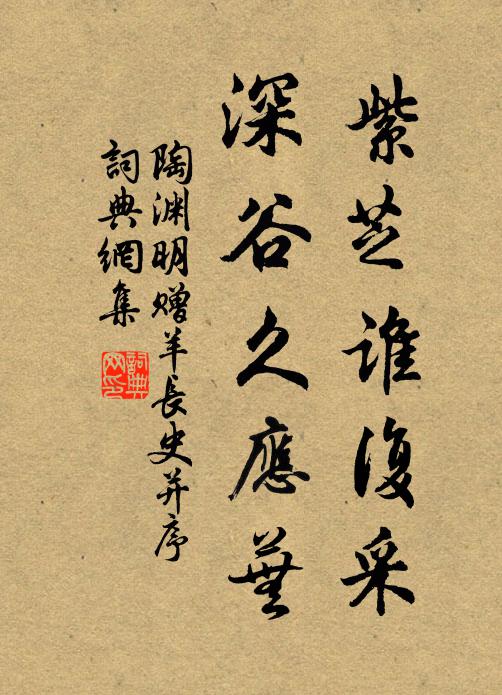 紫芝誰復采
深谷久應蕪
陶渊明贈羊長史并序
詞典網集
詞典网印